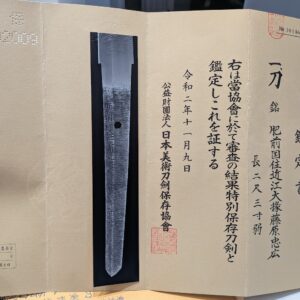 鑑定書
一刀 銘 肥前国住近江大掾藤原忠広
長二尺三寸弱
右は當協會に於て審査の結果特別保存刀剣と
鑑定しこれを証する
令和二年十一月九日
公益財団法人 日本美術刀剣保存協會